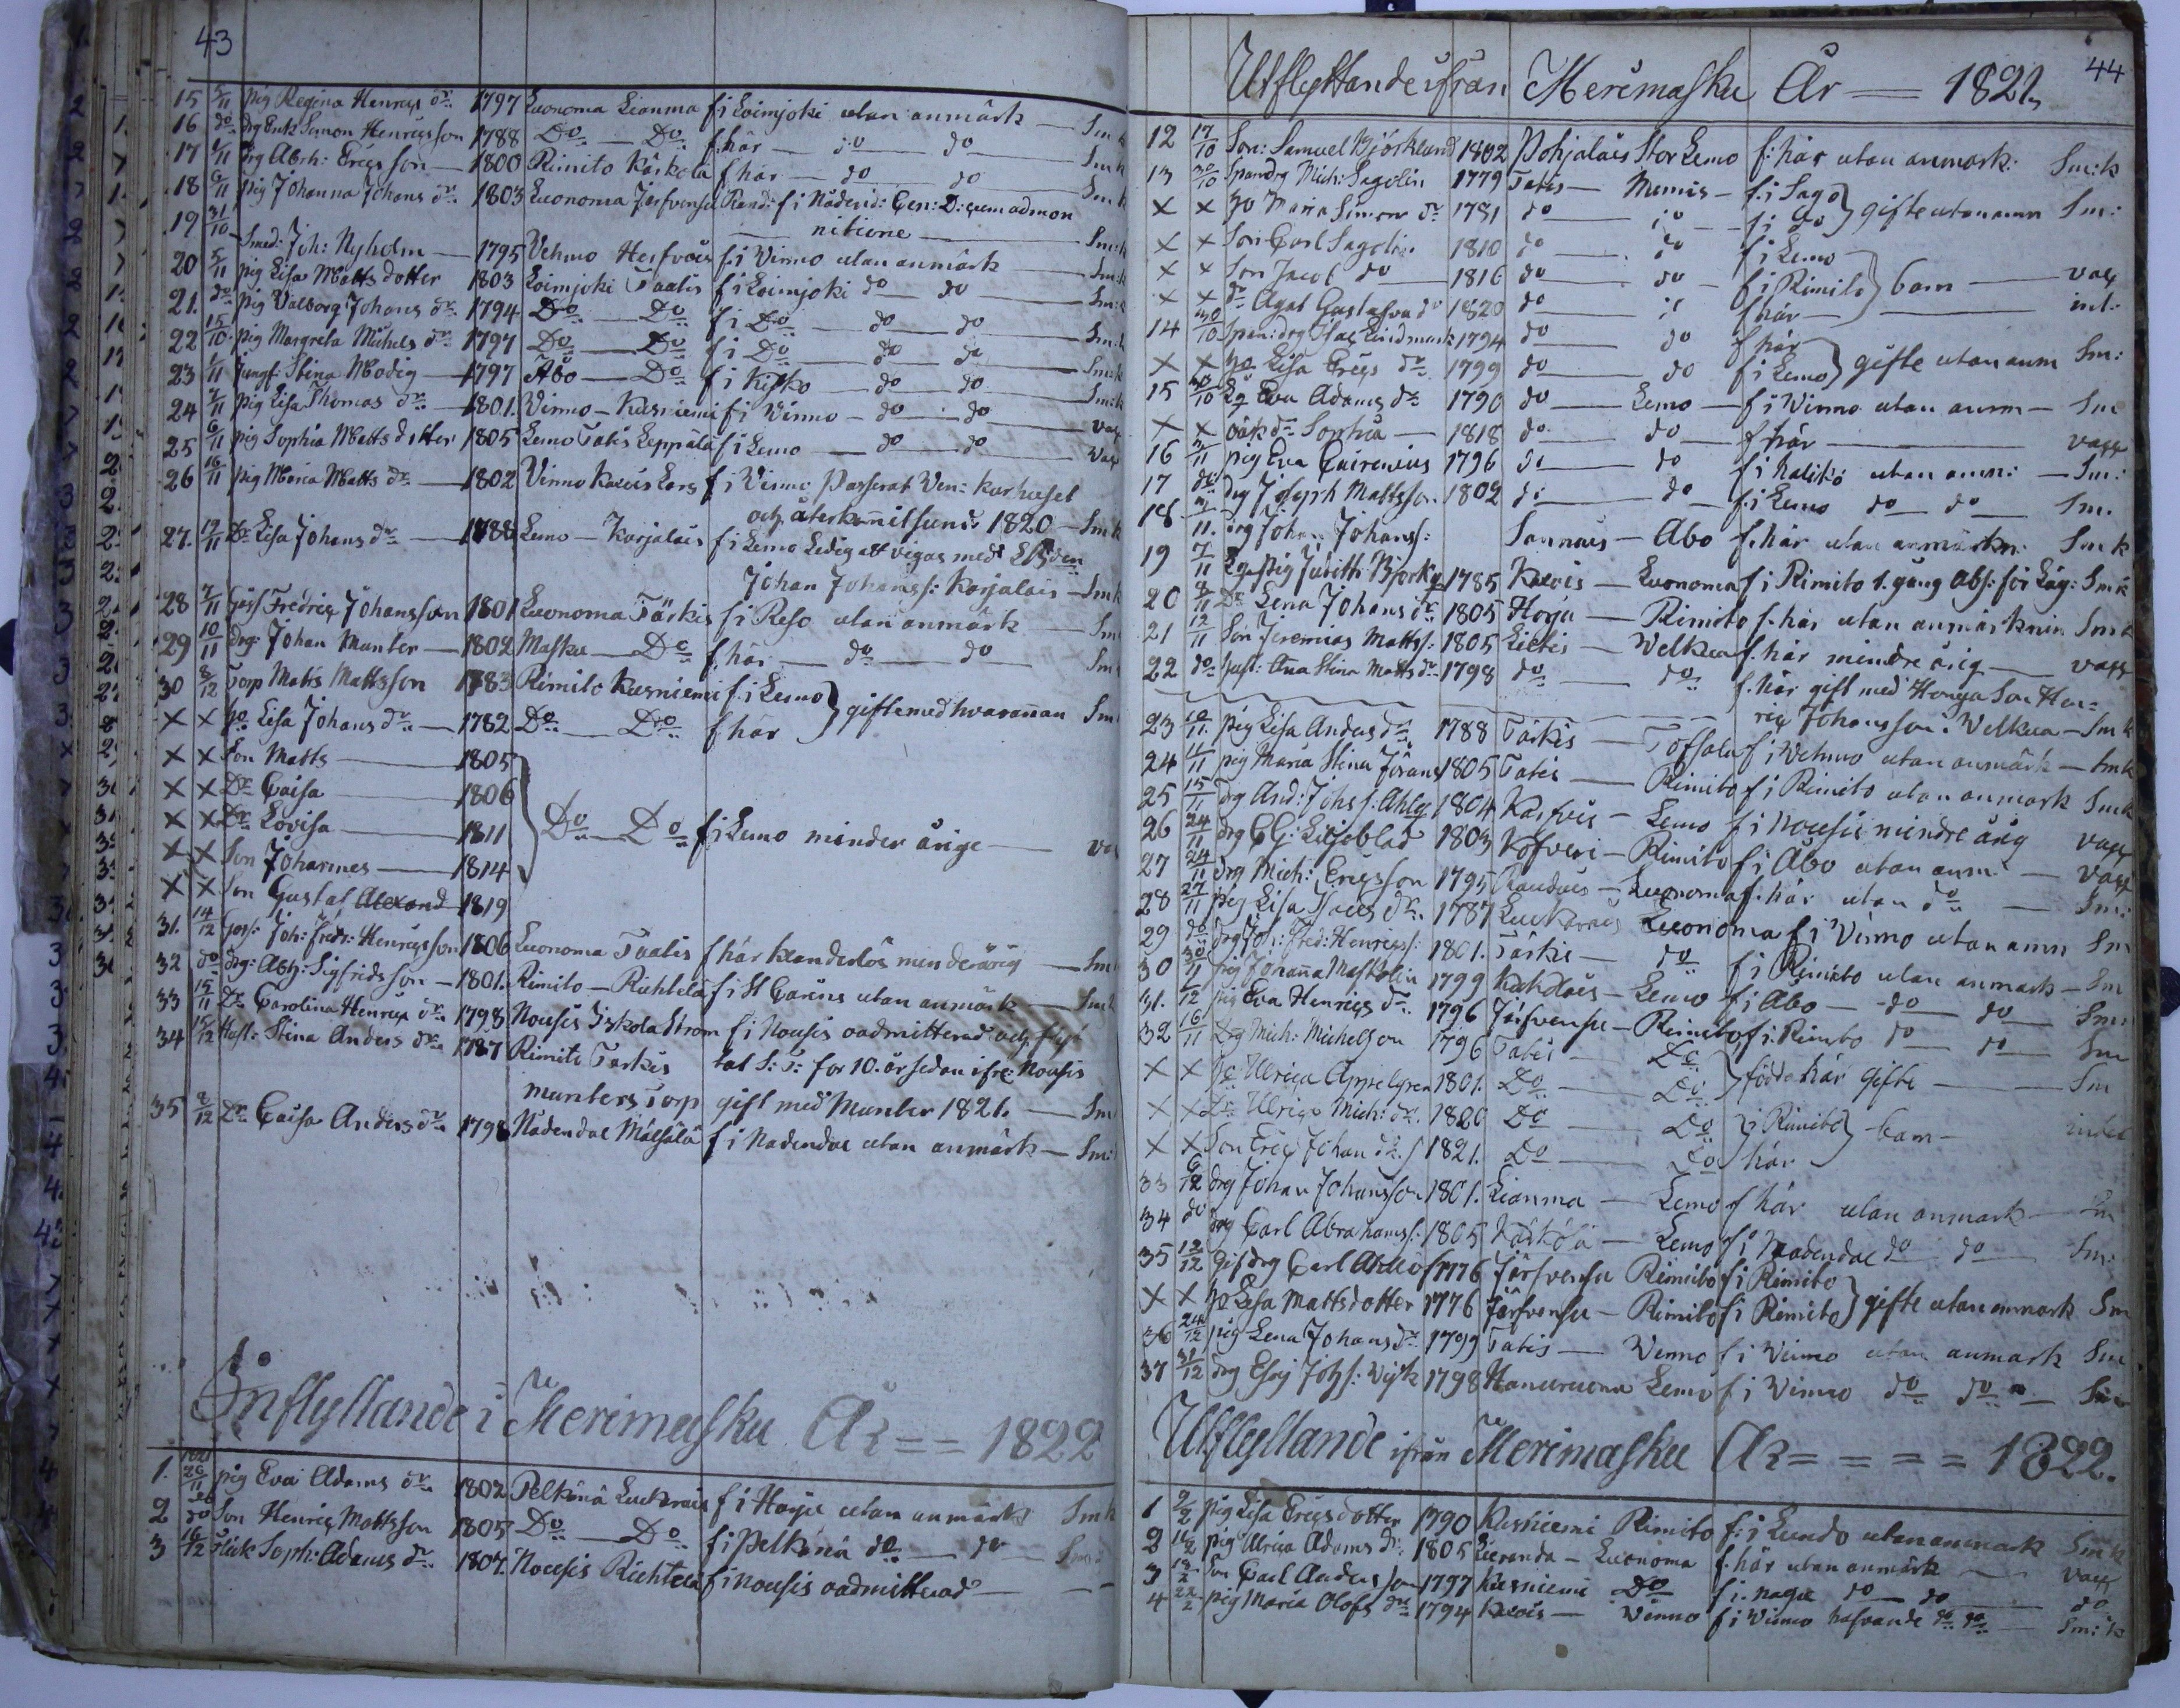 43
15 5/11 pig Regina Henrics dr: 1797 Luonoma Lianma f i Loimjoki utan anmärk Sm
16 do drg Enk Simon Henricsson 1788 Do Do f. här do do Sm k
17 /11 drg Abrh: Ericsson 1800 Rimito Kärkola f här do do Sm k
18 6/11 pig Johanna Johans dr: 1803 Luonoma Jerfvensu Rand: f i Nådend: Cen: D: cum admon
nitione Sm:k
19 31/10 Smed: Joh: Nyholm 1795 Vehmo Herfvois f. i Virmo utan anmärk Sm:k
20 5/11 pig Lisa Matts dotter 1803 Loimjoki Taatis f i Loimjoki do do Sm:
21. do pig Valborg Johans dr: 1794 Do Do f i Do do do Sm:
22 15/10 pig Margreta Michels dr 1797 Do Do f i Do do do Sm:k
23 1/11 jungf: Stina Modig 1797 Åbo Do f i Kisko do do Sm:k
24 7/11 pig Lisa Thomas dr: 1801. Virmo Kusniemi f i Virmo do do vax
25 6/11 pig Sophia Matts dotter 1805 Lemo Tatis Leppälä f i Lemo do do Vax
26 16/11 pig Maria Matts dr 1802 Virmo Kaivis Lars f i Virmo Passerat Ven: kurhuset
och återkom̄it sund: 1820 Sm k
27. 12/11 Dr Lisa Johans dr 1788 Lemo Karjalais f i Lemo Ledig att vigas med
Johan Johanss: Karjalais Sm k
28 7/11 Goss Fredric Johansson 1801 Luonoma Tärkis f i Reso utan anmärk Sm
29 10/11 drg: Johan Munter 1802 Masku Do f. här do do Sm
30 8/12 Torp Matts Mattsson 1783 Rimito Kusniemi f. i Lemo } gifte med hvaran̄an Sm
X X ho Lisa Johans dr 1782 Do Do f här
X X Son Matts 1805
X X Dr Caisa 1806
X X Dr Lovisa 1811 Do Do f i Lemo minder årige va
X X Son Johannes 1814
X X Son Gustaf Alexand 1819
31. 14/12 Goss: Joh: Fredr: Henricsson 1806 Luonoma Taatis f här klanderlös menderårig Sm
32 do drg: Abh: Sigfridsson 1801. Rimito Richtelä f i St Carins utan anmärk Sm k
33 15/11 Dr Carolina Henrics dr: 1798 Nousis Iskola Strom f i Nousis oadmitterad och flyt
34 15/12 Hust: Stina Anders dr: 1787 Rimito Tarkis tat S: S: for 10. år sedan ifrå Nousis
munters Torp gift med Munter 1821. Sm
35 8/12 Dr Caisa Anders dr 1798 Nådendal Mälsälä f i Nådendal utan anmärk Sm:
Inflyttande i Merimasku År == 1822
1. 1821 26/11 pig Eva Adams dr 1802 Pelkänä Luckrais f i Harju utan anmärk Sm k
2 do Son Henric Mattsson 1805 Do Do f i Pelkänä do do Sm
3 16/12 flick Soph: Adams dr 1807. Nousis Richtelä f i nousis oadmitterad
44
Utflyttande ifrån Merimasku År 1821,
12 17/10 Son: Samuel Björklund 1802 Pohjalais Stor Lemo f: här utan anmärk: Sm:k
13 30/10 Span drg Mich: Sagolin 1779 Tatis Mumis f. i Sago } gifte utan anm Sm:
X X ho Maria Simons dr 1781 do do f i do
X X Son Carl Sagolin 1810 do do f i Lemo
X X Son Jacob do 1816 do do f i Rimito } barn vax
X X dr Agat Gustafva do 1820 do f här int:
14 30/10 Span: drg Isac Lindmark 1794 do do f här } gifte utan anm Sm:
X X ho Lisa Erics dr 1799 do do f i Lemo
15 30/10 Eva Adams dr 1790 do Lemo f i Virmo utan anm Sm
X X oäk dr Sophia 1818 do do f här vax
16 3/11 pig Eva Cairenius 1796 do do f i haliko utan anm: Sm:
17 do drg Joseph Mattsson 1802 do do f. i Lemo do do Sm.
18 /11. drg Johan Johanss: Sannais Åbo f. här utan anmärkn: Sm k
19 7/11 pig Judith Björkq 1785 Kaivis Luonoma f i Rimito 1. gång Abs: för Läg: Sm k
20 8/11 Dr Lena Johans dr 1805 Horja Rimito f. här utan anmärknin Sm k
21 12/11 Son Jeremias Mattss: 1805 Lietis Welkua f. här mindre årig vax
22 do Hust: Ana Stina Matts dr 1798 do do f. här gift med Honga Son Hen=
ric Johansson i Welkua Sm k
23 10/11. pig Lisa Anders dr: 1788 Tärkis Töfsala f i Vehmo utan anmärk Sm k
24 11/11 pig Maria Stina Jörans 1805 Tatis Rimito f i Rimito utan anmärk Sm k
25 15/11 drg And: Johs s: Ahlq 1804 Karfvis Lemo f i Nousis mindre årig vax
26 24/11 drg C G: Liljeblad 1803 Köfveri Rimito f i Åbo utan anm vax
27 24/11 drg Mich: Ericsson 1795 Randais Luonoma f. här utan do Sm:
28 27/11 pig Lisa Isacs dr. 1787 Luckarais Luonoma f i Virmo utan anm Sm
29 do drg Joh: Fred: Henricss: 1801. Tärkis do f i Rimito utan anmärk Sm
30 30/11 pig Johan̄a Mastolin 1799 Kuhdlais Lemo f i Åbo do do Sm:
31. /12 pig Eva Henrics dr. 1796 Järfvensu Rimito f. i Rimito do do Sm
32 16/11 Drg Mich: Michelson 1796 Tatis Do } födda här Gifte Sm
X X ho Ulrica Appelgren 1801. Do Do
X X Dr Ulrica Mich: dr. 1820 Do Do } i Rimito } barn
X X Son Eric Johan 1821. Do Do här
33 6/12 drg Johan Johansson 1801. Lianma Lemo f här utan anmärk Sm
34 do drg Carl Abrahamss: 1805 Kärkölä Lemo f i Nadendal do do Sm:
35 12/12 Gif drg Carl 1776 Järfvensu Rimito f i Rimito } gifte utan anmärk Sm
X X ho Lisa Mattsdotter 1776 Järfvensu Rimito f i Rimito
36 24/12 pig Lena Johans dr 1799 Tatis Virmo f i Virmo utan anmärk Sm
37 31/12 drg Esaj Johs: Wijk 1798 Lemo f i Virmo do do Sm
Utflyttande ifrån Merimasku År = = = = 1822.
1 9/2 pig Lisa Erics dotter 1790 Kusniemi Rimito f: i Lundo utan anmärk Sm k
2 /2 pig Ulrica Adams dr. 1805 Lieranda Luonoma f. här utan anmärk vax
3 12/2 Son Carl Andersson 1797 Kusniemi Do f i. nagu do do do
4 22/2 pig Maria Olofs dr 1794 Kaivis Virmo f i Virmo hafvande do do Sm: k